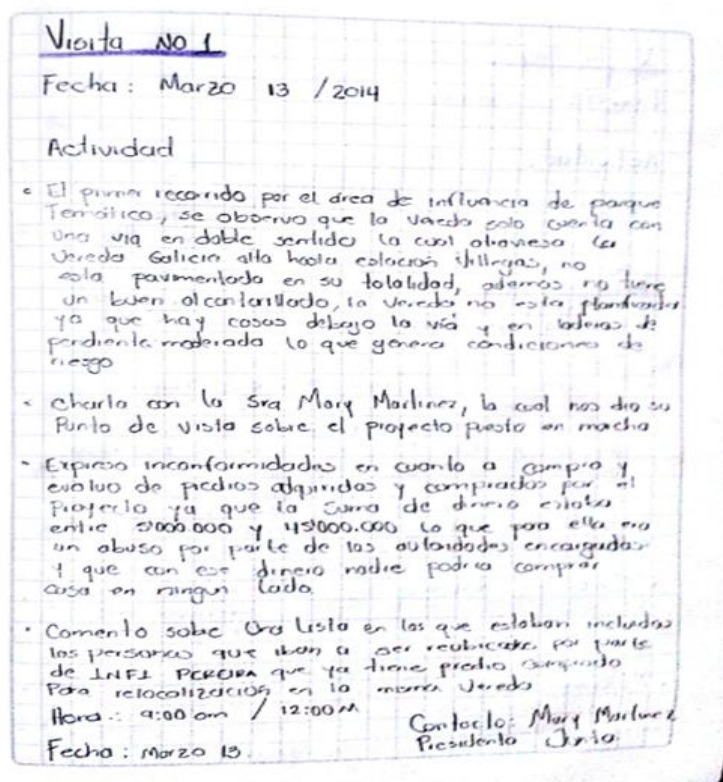 Visita NO 1
Fecha: Marzo 13 / 2014
Actividad
• El primer recorrido por el área de influencia de parque
Temático, se observo que la vereda solo cuenta con
una via en doble sentido la cual atraviesa la
Vereda Galicia alta hasta estación Villegas, no
esta pavimentada en su totalidad, ademas no tiene
un buen alcantarillado, la vereda no esta planificada
ya que hay casas debajo la vía y en laderas de
pendiente moderada lo que genera condiciones de
riesgo
• Charla con la Sra Mary Martinez, la cual nos dio su
Punto de vista sobre el proyecto puesto en marcha
• Expreso inconformidades en cuanto a compra y
evaluo de predios adquiridos y comprados por el
Proyecto ya que la suma de dinero estaba
entre 5'000.000 y 45'000.000 lo que para ella era
un abuso por parte de las autoridades encargadas
y que con ese dinero nadie podria comprar
casa en ningun lado.
• Comento sobre una lista en las que estaban incluidas
las personas que iban a ser reubicadas por parte
de INFI PEREIRA que ya tiene predio comprado
Para relocalización en la misma Vereda
Hora: 9:00 am / 12:00 M
Contacto: Mary Martinez
Fecha: Marzo 13.
Presidenta Junta